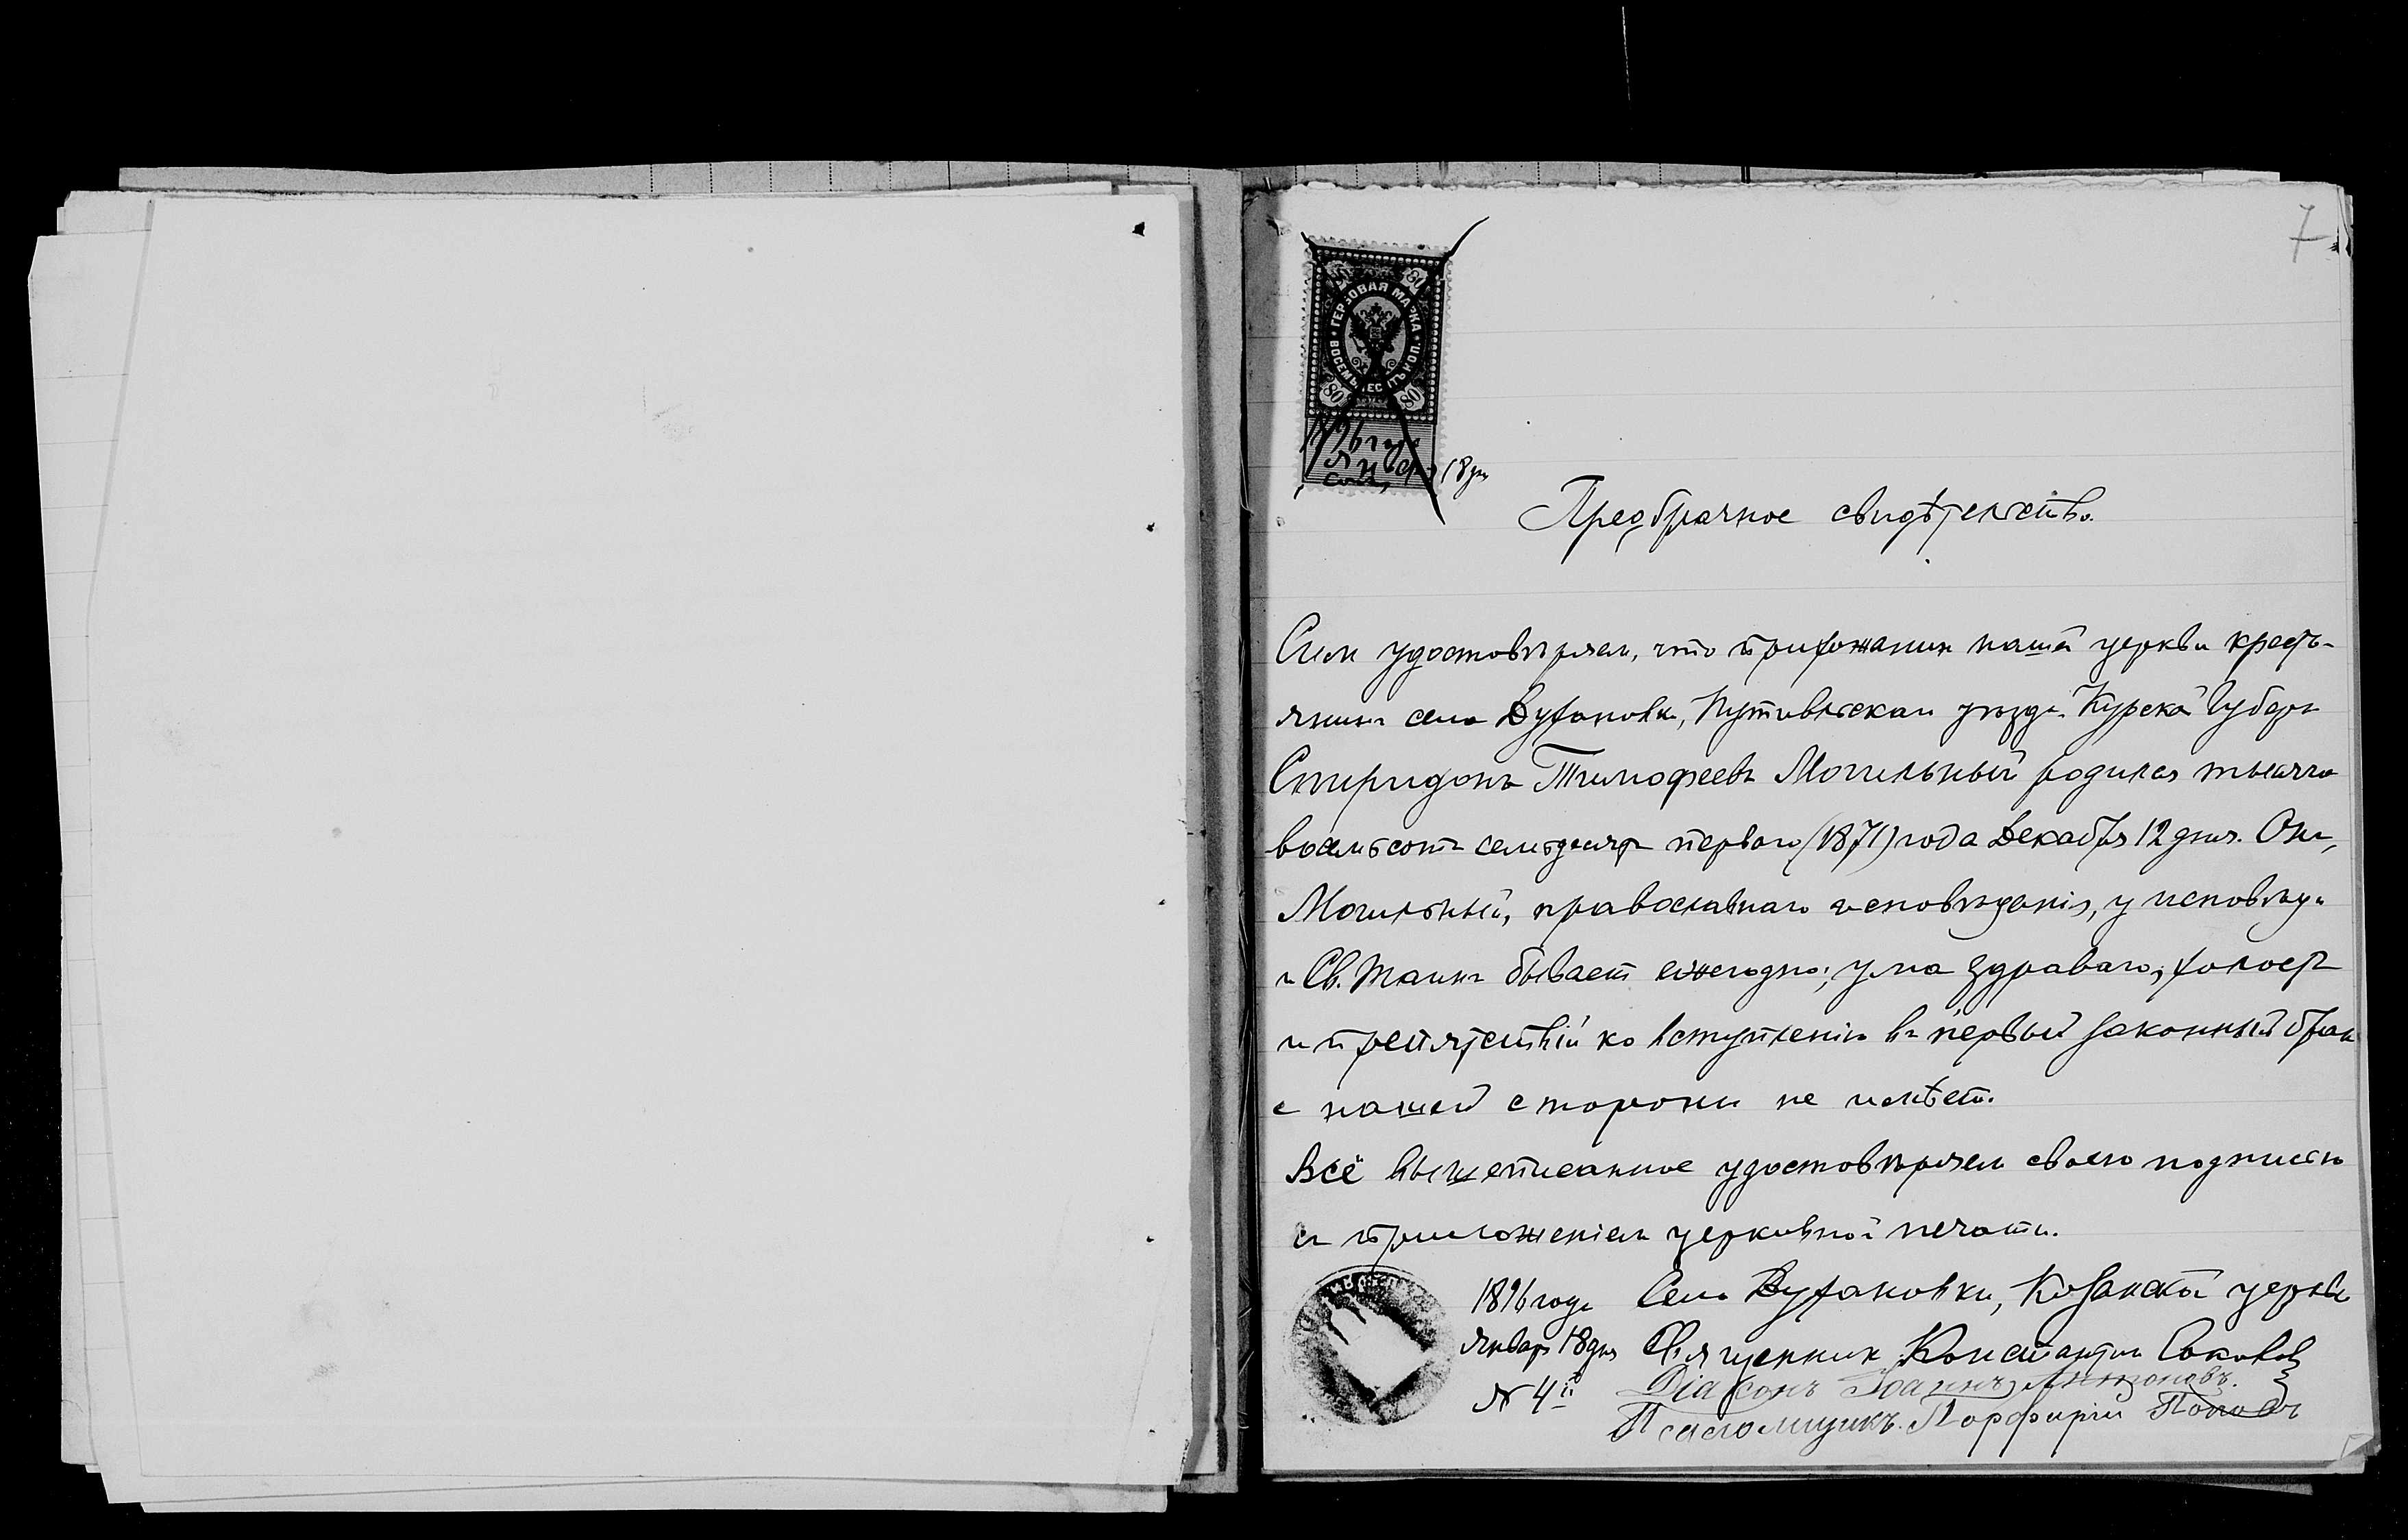 7
ГЕРБОВАЯ МАРКА
ВОСЕМЬДЕСЯТЪ КОП.
80 80
80 80
1896 года
Января 18 дня
Предбрачное свидѣтельство.
Сим удостовѣряем, что прихожанин нашей церкви кресть-
янинъ села Духановки, Путивльскаго уѣзда Курской Губерн
Спиридонъ Тимофеевъ Могильный родился тысяча
восемьсотъ семьдесятъ перваго (1871) года Декабря 12 дня. Онъ,
Могильный, православнаго исповѣданія, у исповѣди
и Св. Таинъ бывает ежегодно; ума здраваго, холостъ
и препятствій ко вступленію въ первый законный брак
с нашей стороны не имѣет.
Всё вышеписанное удостовѣряем своею подписью
съ приложеніем церковной печати.
1896 года Села Духановки, Казанской церкви
Января 18 дня Священник Константин Соколов
№ 4й Діаконъ Іоаннъ Антоновъ.
Псаломщикъ Порфирій Поповъ